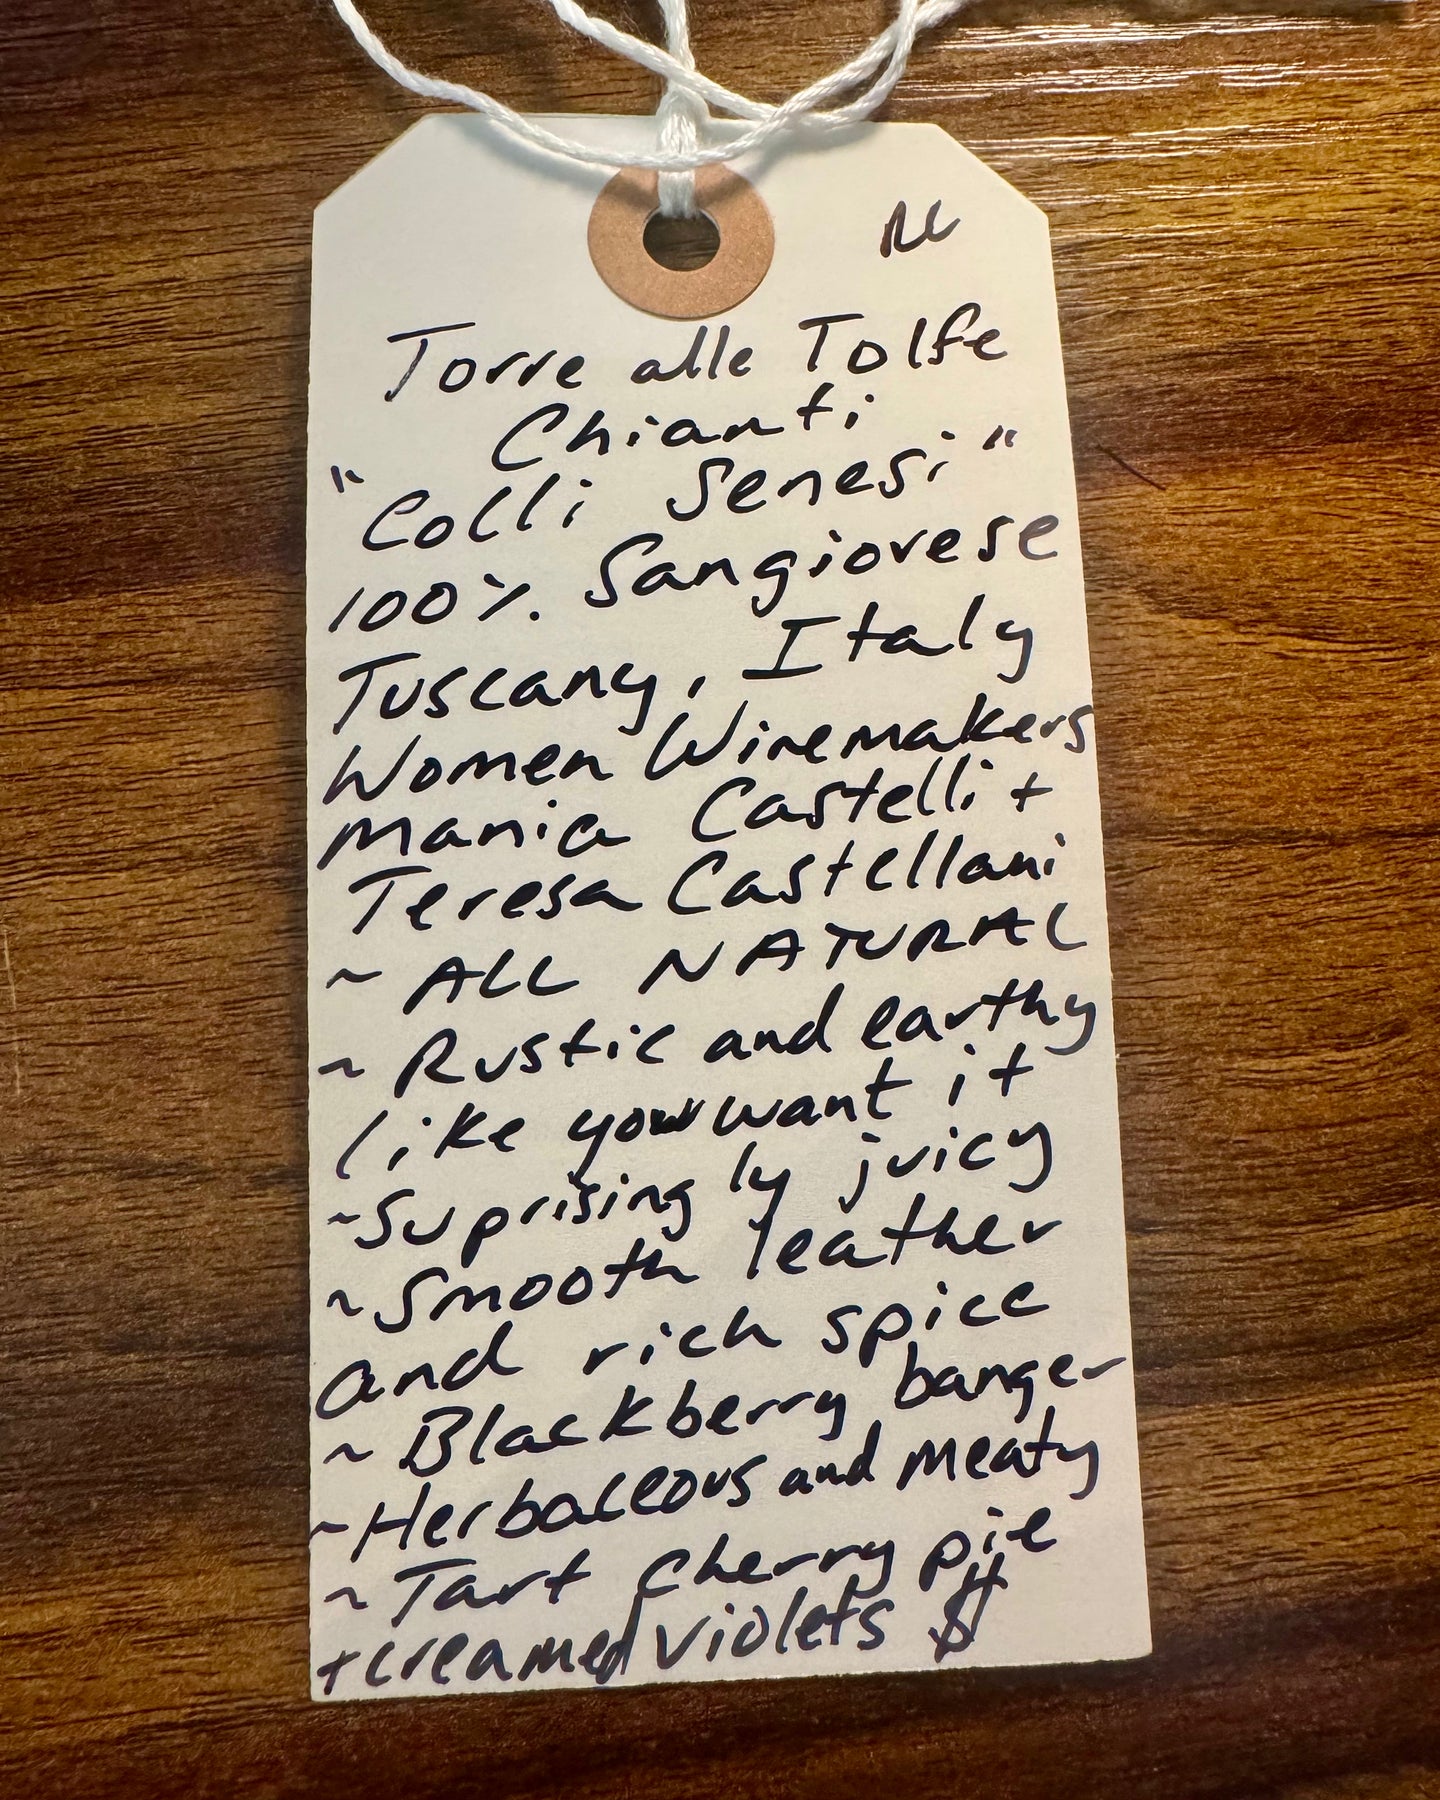 RC
Torre alle Tolfe
Chianti
"Colli Senesi"
100% Sangiovese
Tuscany, Italy
Women Winemakers
Mania Castelli +
Teresa Castellani
~ ALL NATURAL
~ Rustic and earthy
like you want it
~Suprisingly juicy
~Smooth leather
and rich spice
~ Blackberry banger
~Herbaceous and meaty
~ Tart cherry pie
+creamed violets $